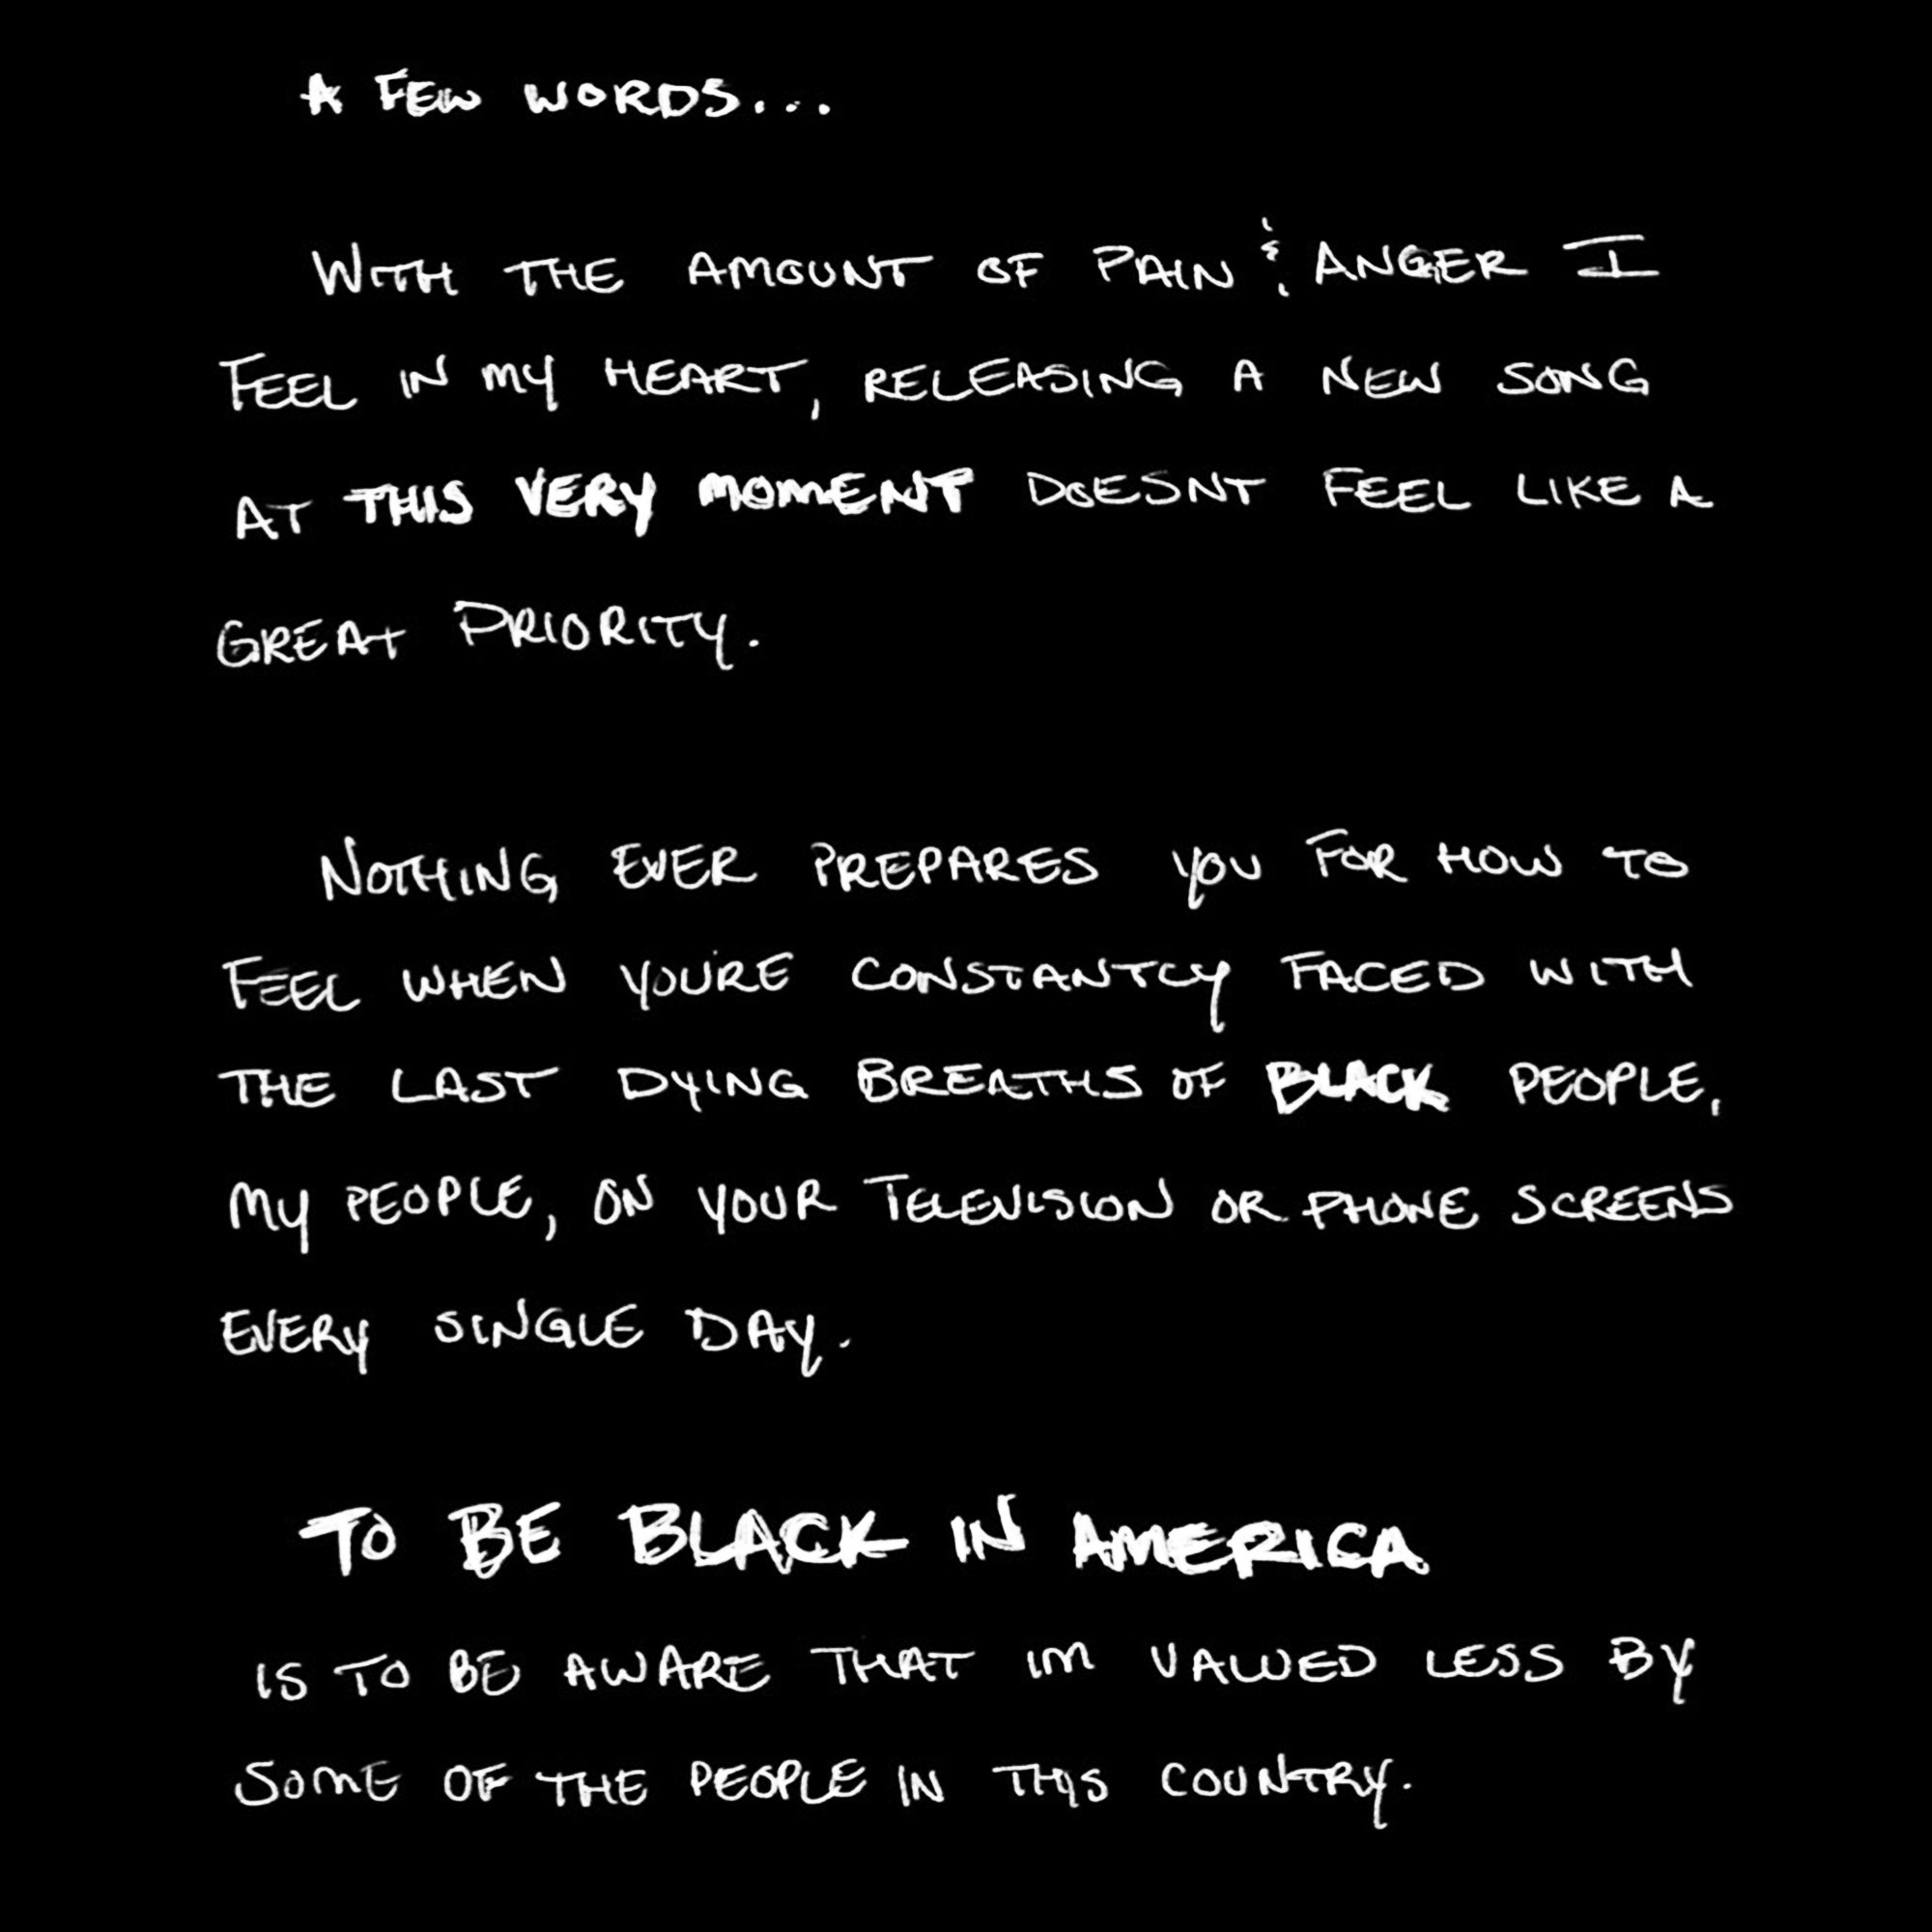 A FEW WORDS...
WITH THE AMOUNT OF PAIN & ANGER I
FEEL IN MY HEART, RELEASING A NEW SONG
AT THIS VERY MOMENT DOESNT FEEL LIKE A
GREAT PRIORITY.
NOTHING EVER PREPARES YOU FOR HOW TO
FEEL WHEN YOU'RE CONSTANTLY FACED WITH
THE LAST DYING BREATHS OF BLACK PEOPLE,
MY PEOPLE, ON YOUR TELEVISION OR PHONE SCREENS
EVERY SINGLE DAY.
TO BE BLACK IN AMERICA
IS TO BE AWARE THAT IM VALUED LESS BY
SOME OF THE PEOPLE IN THIS COUNTRY.